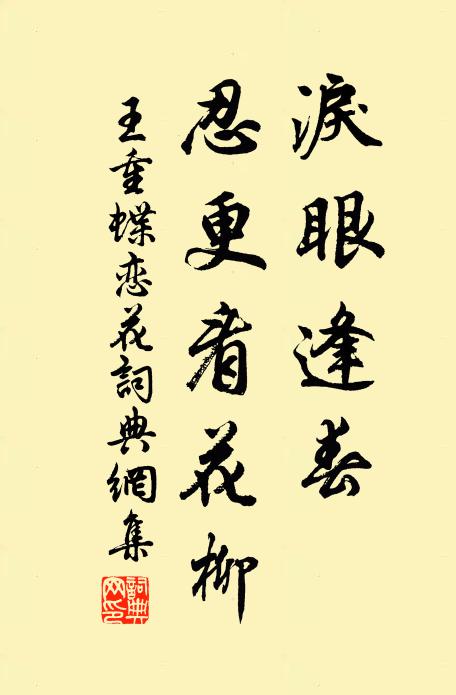 淚眼逢春
忍更看花柳
王重蝶恋花詞典網集
詞典網印